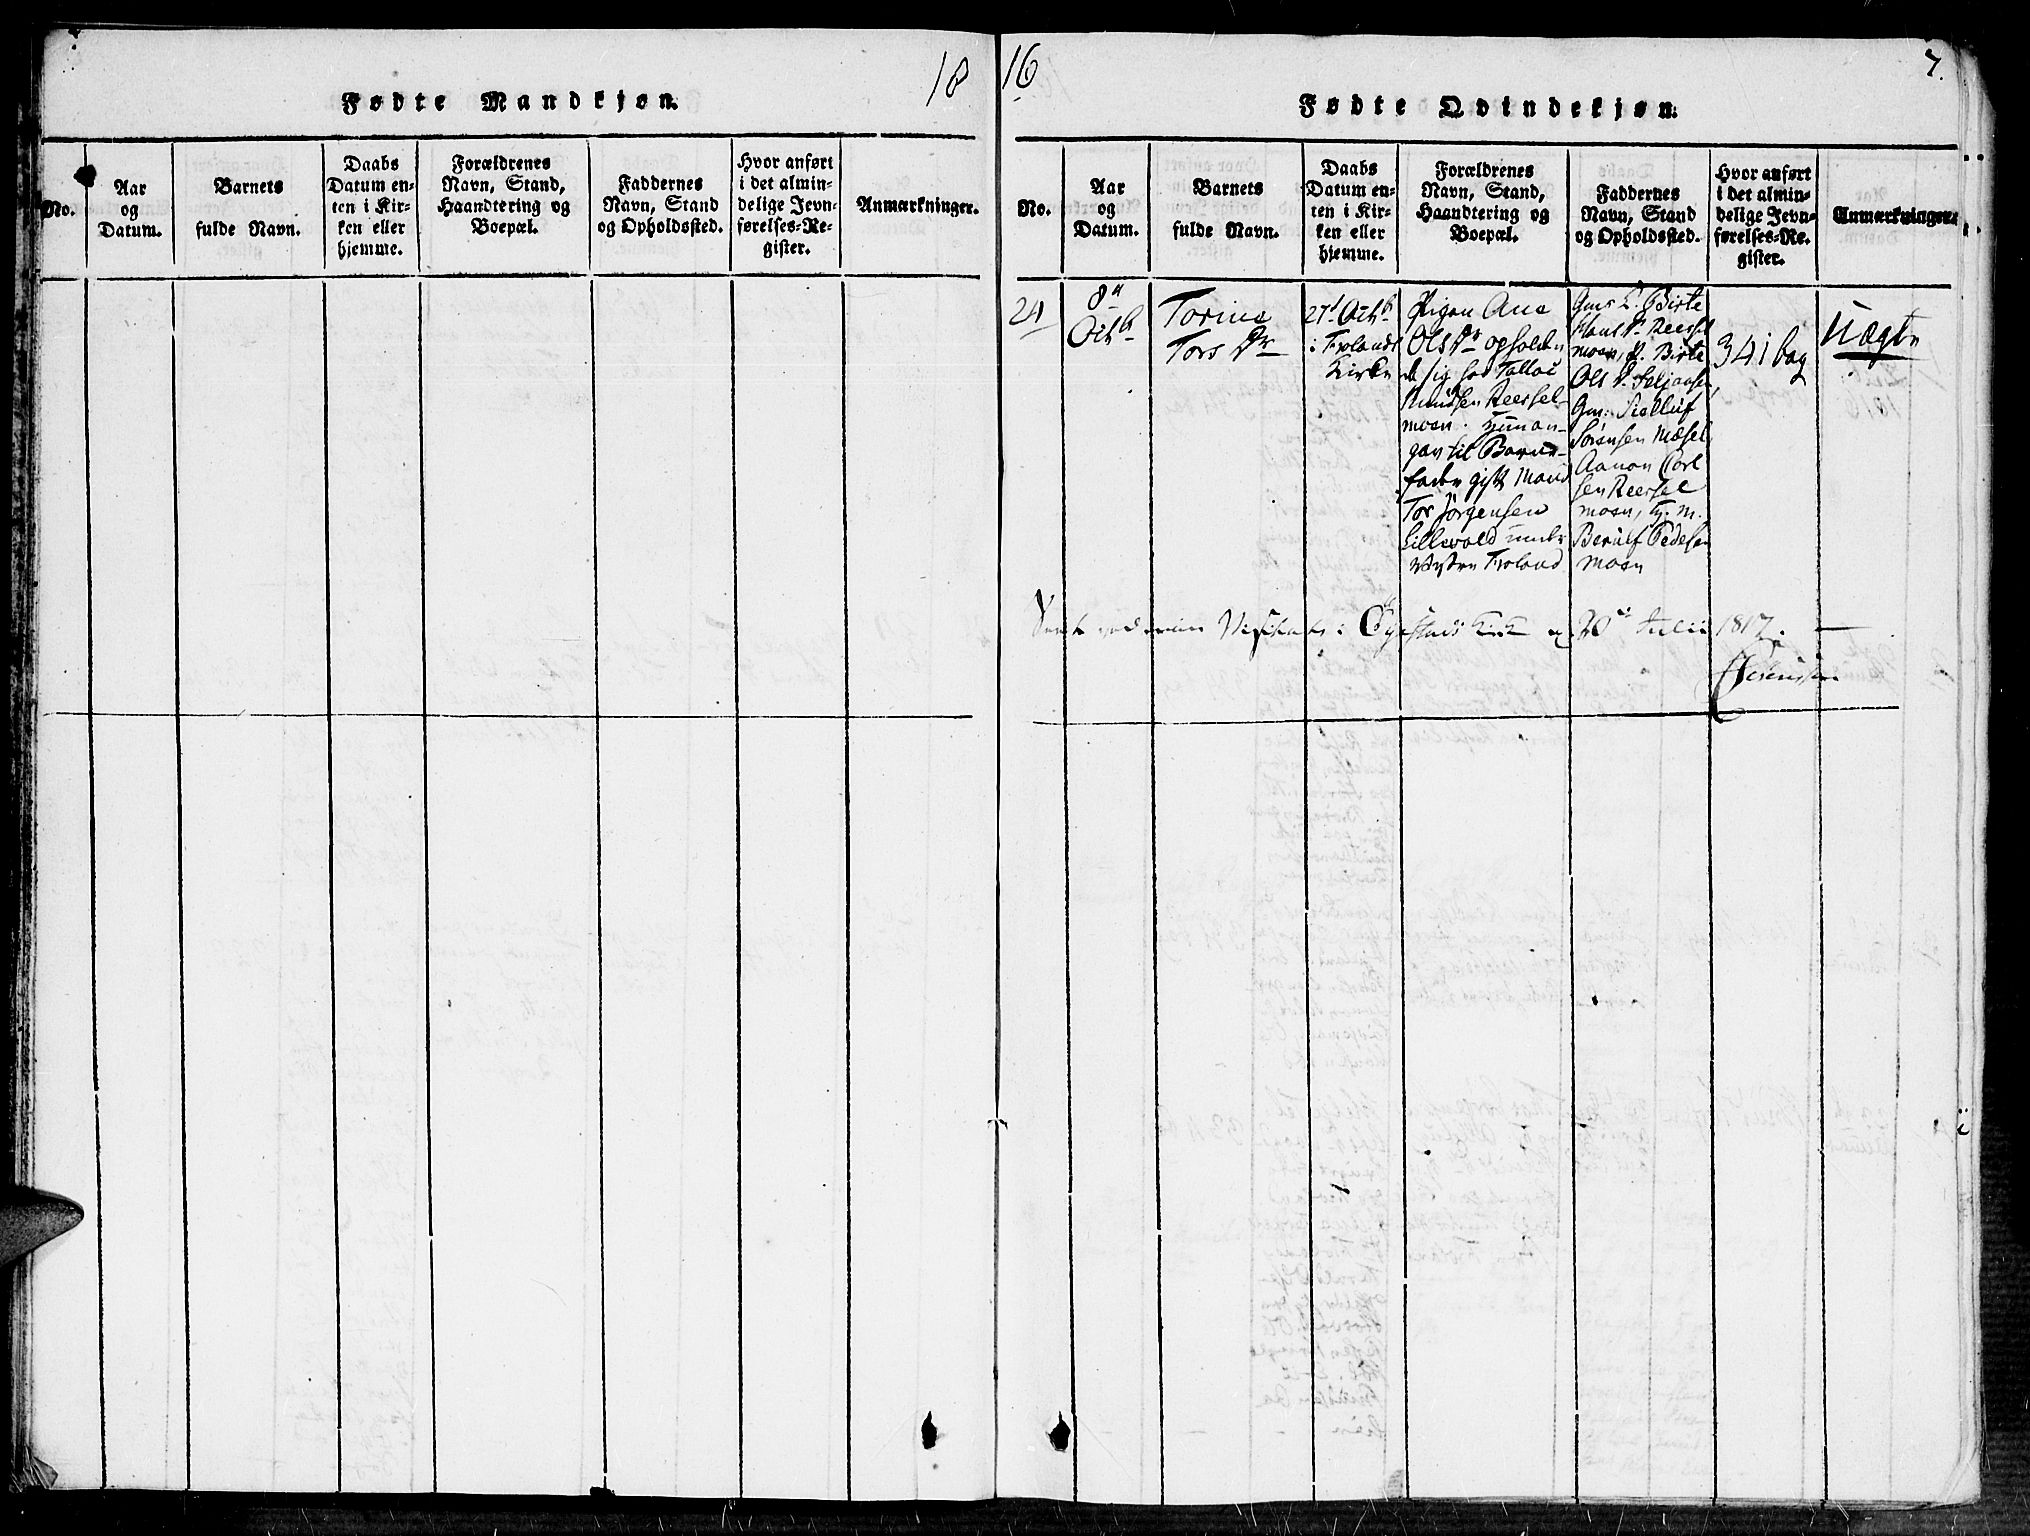 18
16
7.
Fødte Mandkjøn.
No.
Aar
og
Datum.
Barnets
fulde Navn.
Daabs
Datum en-
ten i Kir-
ken eller
hjemme.
Forældrenes
Navn, Stand,
Haandtering og
Boepæl.
Faddernes
Navn, Stand
og Opholdssted.
Hvor anført
i det almin-
delige Jevn-
førelses-Re-
gister.
Anmærkninger.
Fødte Qvindekjøn.
No.
Aar
og
Datum.
Barnets
fulde Navn.
Daabs
Datum en-
ten i Kir-
ken eller
hjemme.
Forældrenes
Navn, Stand,
Haandtering og
Boepæl.
Faddernes
Navn, Stand
og Opholdssted.
Hvor anført
i det almin-
delige Jevn-
førelses-Re-
gister.
Anmærkninger.
24
8de
Octb
Torine
Tors Dr
27d Octb
i Frolands
Kirke
Pigen Ane
Ols Dr opholden
de sig hos Tallov
Knudsen Reersel-
moen.
gav til Barne-
fader gift Mand
Tor Jørgensen
Lillevold under
Froland
Gms K. Birte
Reersel
moen, P. Birte
Ols D.
Gm:
Sørensen Mæsel
Aanon
sen Reersel
moen, Ty. M.
Berulf Pedersen
moen
341 bag
Uægte
Seet ved min Visitats i Øyestad Kirke 20de Julii 1817.